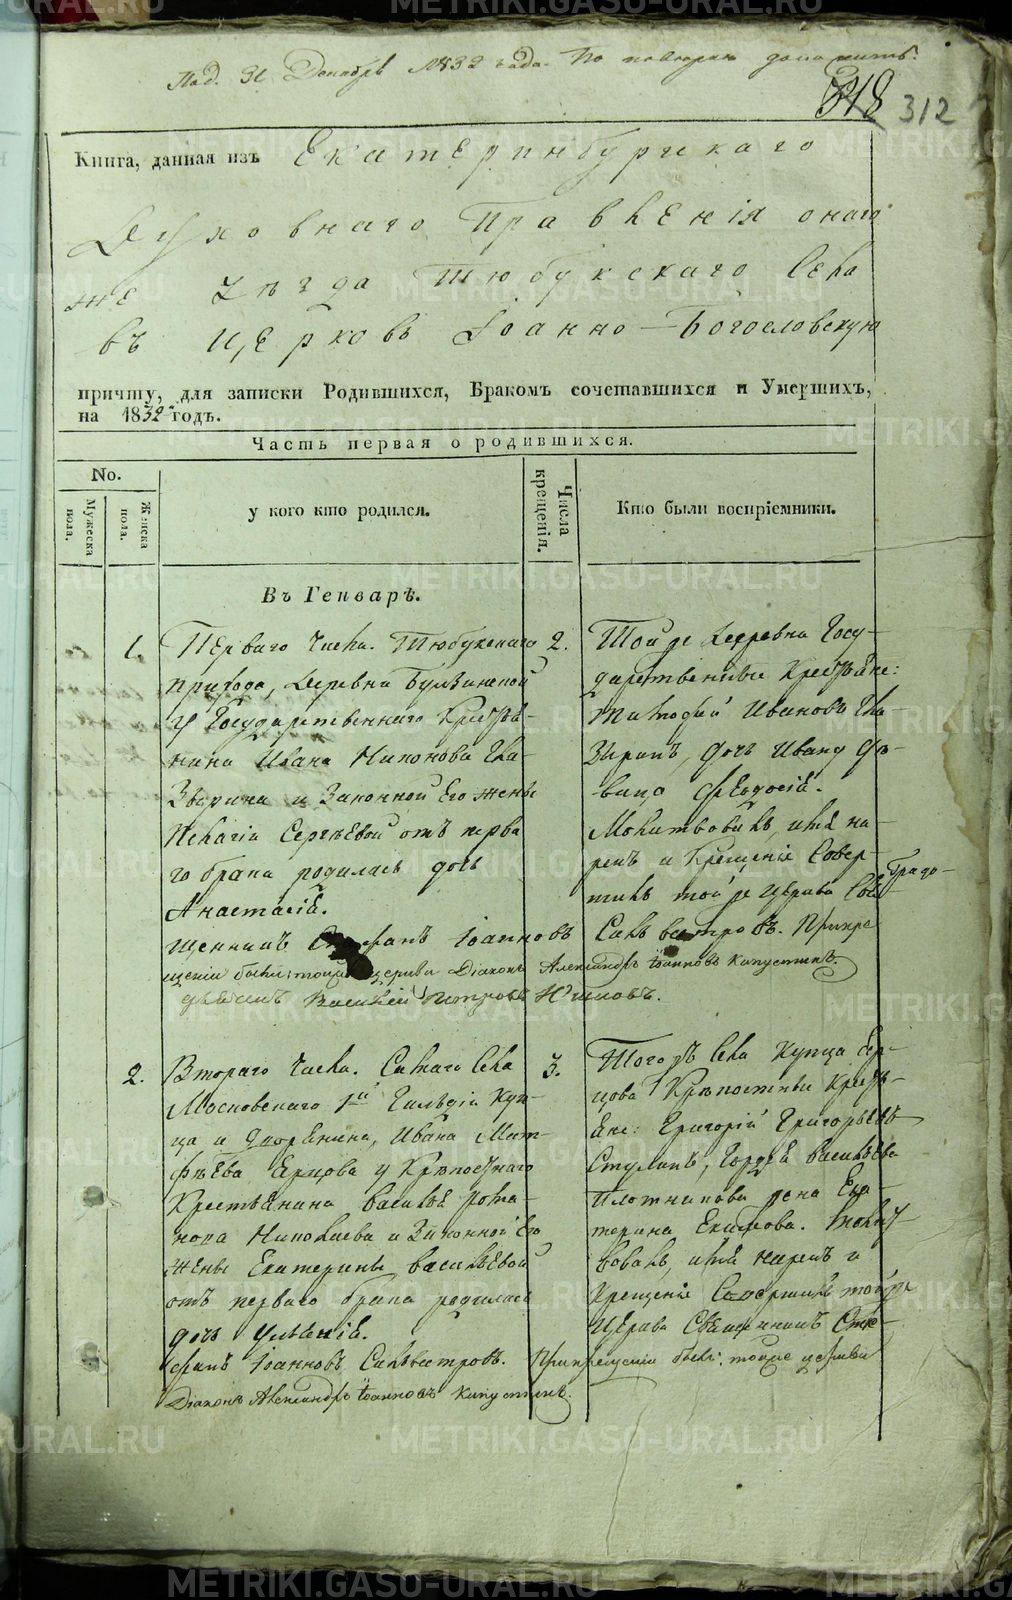 METRIKI.GASO-URAL.RU
Декабря 1832 года. По
318 312
Книга, данная изъ Екатеринбургскаго
Духовнаго Правленія онаго
же уѣзда Тюбукскаго Села
въ Церковь Іоанно-Богословскую
причту, для записки Родившихся, Бракомъ сочетавшихся и Умершихъ,
на 1832 годъ.
Часть первая о родившихся.
No.
Мужеска пола.
Женска пола.
у кого кто родился.
Числа крещенія.
Кто были воспріемники.
Въ Генварѣ.
1.
Перваго Числа. Тюбукскаго
прихода, Деревни Булзинской
у Государственнаго Крестья-
нина Ивана Никонова Гла-
зырина и Законной Его жены
Пелагіи Сергѣевой отъ перва
го брака родилась дочь
Анастасія.
2.
Той же деревни Госу-
дарственные Крестьяне:
Тимофей Ивановъ Гла-
зыринъ, дочь Ивану дѣ-
вица Феодосія.
Молитвовалъ, имя на-
рекъ и Крещеніе Совер-
шилъ той же Церкви Свя
щенникъ Стефанъ Іоанновъ Сильвестровъ. Прикре
щеніи были: тойже церкви Діаконъ Александръ Іоанновъ Капустинъ.
Василій Петровъ
2.
Втораго Числа. Самаго Села
Московскаго 1й Гильдіи Куп-
ца и Дворянина, Ивана Мат-
фѣева Ерцова у Крѣпостнаго
Крестьянина Василья Рома-
нова Николаева и Законной Его
жены Екатерины Васильевой
отъ перваго брака родилась
дочь Уліанія.
3.
Тогожъ Села Купца Ер-
цова Крѣпостные Кресть-
яне: Григорій Григорьевъ
Ступинъ, Гордѣя Васильева
Плотникова жена Ека-
терина Екимова. Молит
вовалъ, имя нарекъ и
Крещеніе Совершилъ тойже
Церкви Священникъ Сте-
фанъ Іоанновъ Сильвестровъ. Прикрещеніи были: тойже церкви
Діаконъ Александръ Іоанновъ Капустинъ.